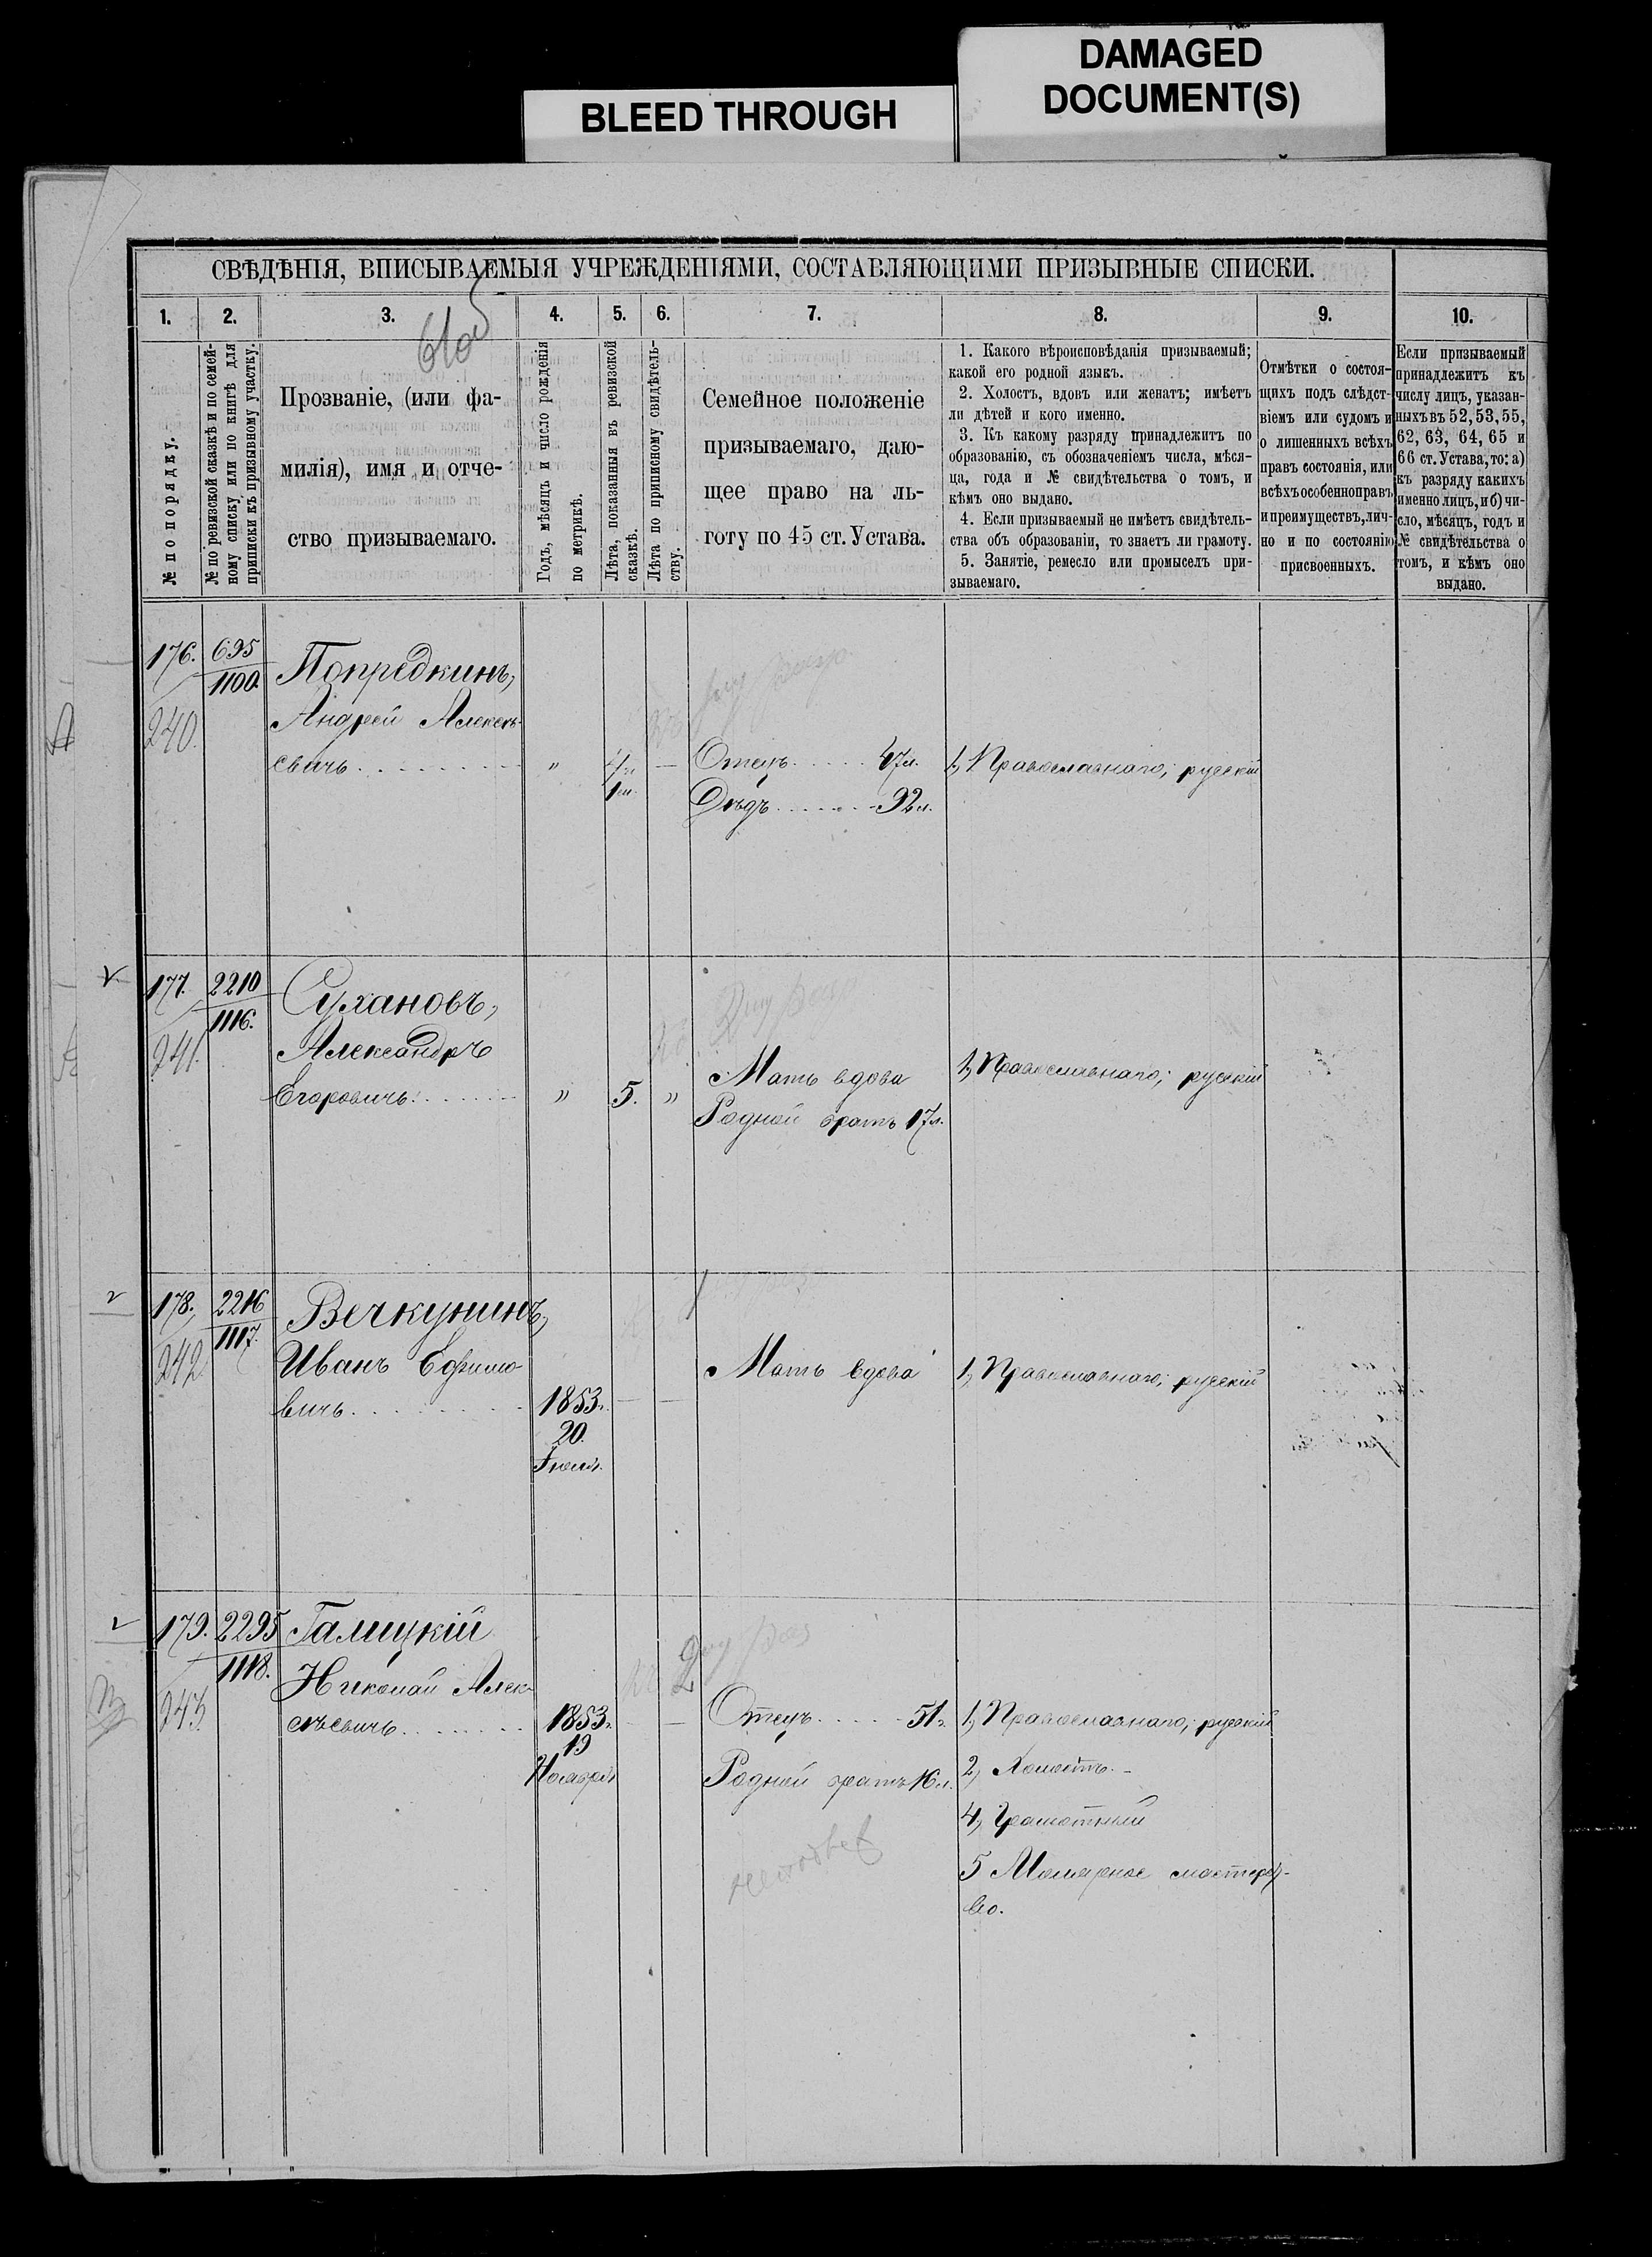 BLEED THROUGH
DAMAGED
DOCUMENT(S)
СВѢДѢНІЯ, ВПИСЫВАЕМЫЯ УЧРЕЖДЕНІЯМИ, СОСТАВЛЯЮЩИМИ ПРИЗЫВНЫЕ СПИСКИ.
1.
2.
3.
4.
5.
6.
7.
8.
9.
10.
№ по порядку.
№ по ревизской сказкѣ и по семей-
ному списку или по книгѣ для
приписки къ призывному участку.
Прозваніе, (или фа-
милія), имя и отче-
ство призываемаго.
Годъ, мѣсяцъ и число рожденія
по метрикѣ.
Лѣта, показанныя въ ревизской
сказкѣ.
Лѣта по приписному свидѣтель-
ству.
Семейное положеніе
призываемаго, даю-
щее право на ль-
готу по 45 ст. Устава.
1. Какого вѣроисповѣданія призываемый;
какой его родной языкъ.
2. Холостъ, вдовъ или женатъ; имѣетъ
ли дѣтей и кого именно.
3. Къ какому разряду принадлежитъ по
образованію, съ обозначеніемъ числа, мѣся-
ца, года и № свидѣтельства о томъ, и
кѣмъ оно выдано.
4. Если призываемый не имѣетъ свидѣтель-
ства объ образованіи, то знаетъ ли грамоту.
5. Занятіе, ремесло или промыселъ при-
зываемаго.
Отмѣтки о состоя-
щихъ подъ слѣдст-
віемъ или судомъ и
о лишенныхъ всѣхъ
правъ состоянія, или
всѣхъ особенно правъ
и преимуществъ, лич-
но и по состоянію
присвоенныхъ.
Если призываемый
принадлежитъ къ
числу лицъ, указан-
ныхъ въ 52, 53, 55,
62, 63, 64, 65 и
66 ст. Устава, то: а)
къ разряду какихъ
именно лицъ, и б) чи-
сло, мѣсяцъ, годъ и
№ свидѣтельства о
томъ, и кѣмъ оно
выдано.
176. 695 Попредкинъ,
1100.
240. Андрей Алексѣ-
евичъ . . . . . . . . „ — Отецъ . . . . . 47 л. 1, Православнаго; русскій
Дѣдъ . . . . . . 92 л.
177. 2210 Сухановъ,
1116.
241. Александръ
Егоровичъ . . . . . . „ 5. „ Мать вдова 1, Православнаго; русскій
Родной братъ 17 л.
178. 2216 Вечкунинъ,
1117.
242 Иванъ Ефимо Мать вдова 1, Православнаго; русскій
вичъ . . . . . . . . 1853 г. — —
20.
Іюля.
179. 2295 Галицкій
1118.
243. Николай Алек-
сѣевичъ . . . . . . . 1853 г. — — Отецъ . . . . . 51 г. 1, Православнаго; русскій
19
Ноября Родной братъ 16 л. 2, Холостъ. –
4, Грамотный
5 Малярное мастерст-
во.